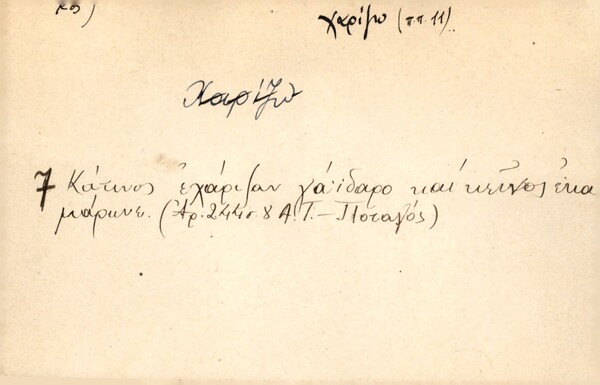 κος)
χαρίζω (π.π. 11)
Χαρίζω
7 Κάτινος ἐχάριζαν γάϊδαρο καί κεῖνος ἐκα
μάρωνε. (Ἀρ. 244 σ. 8 Α.Τ. – Ποταμός)